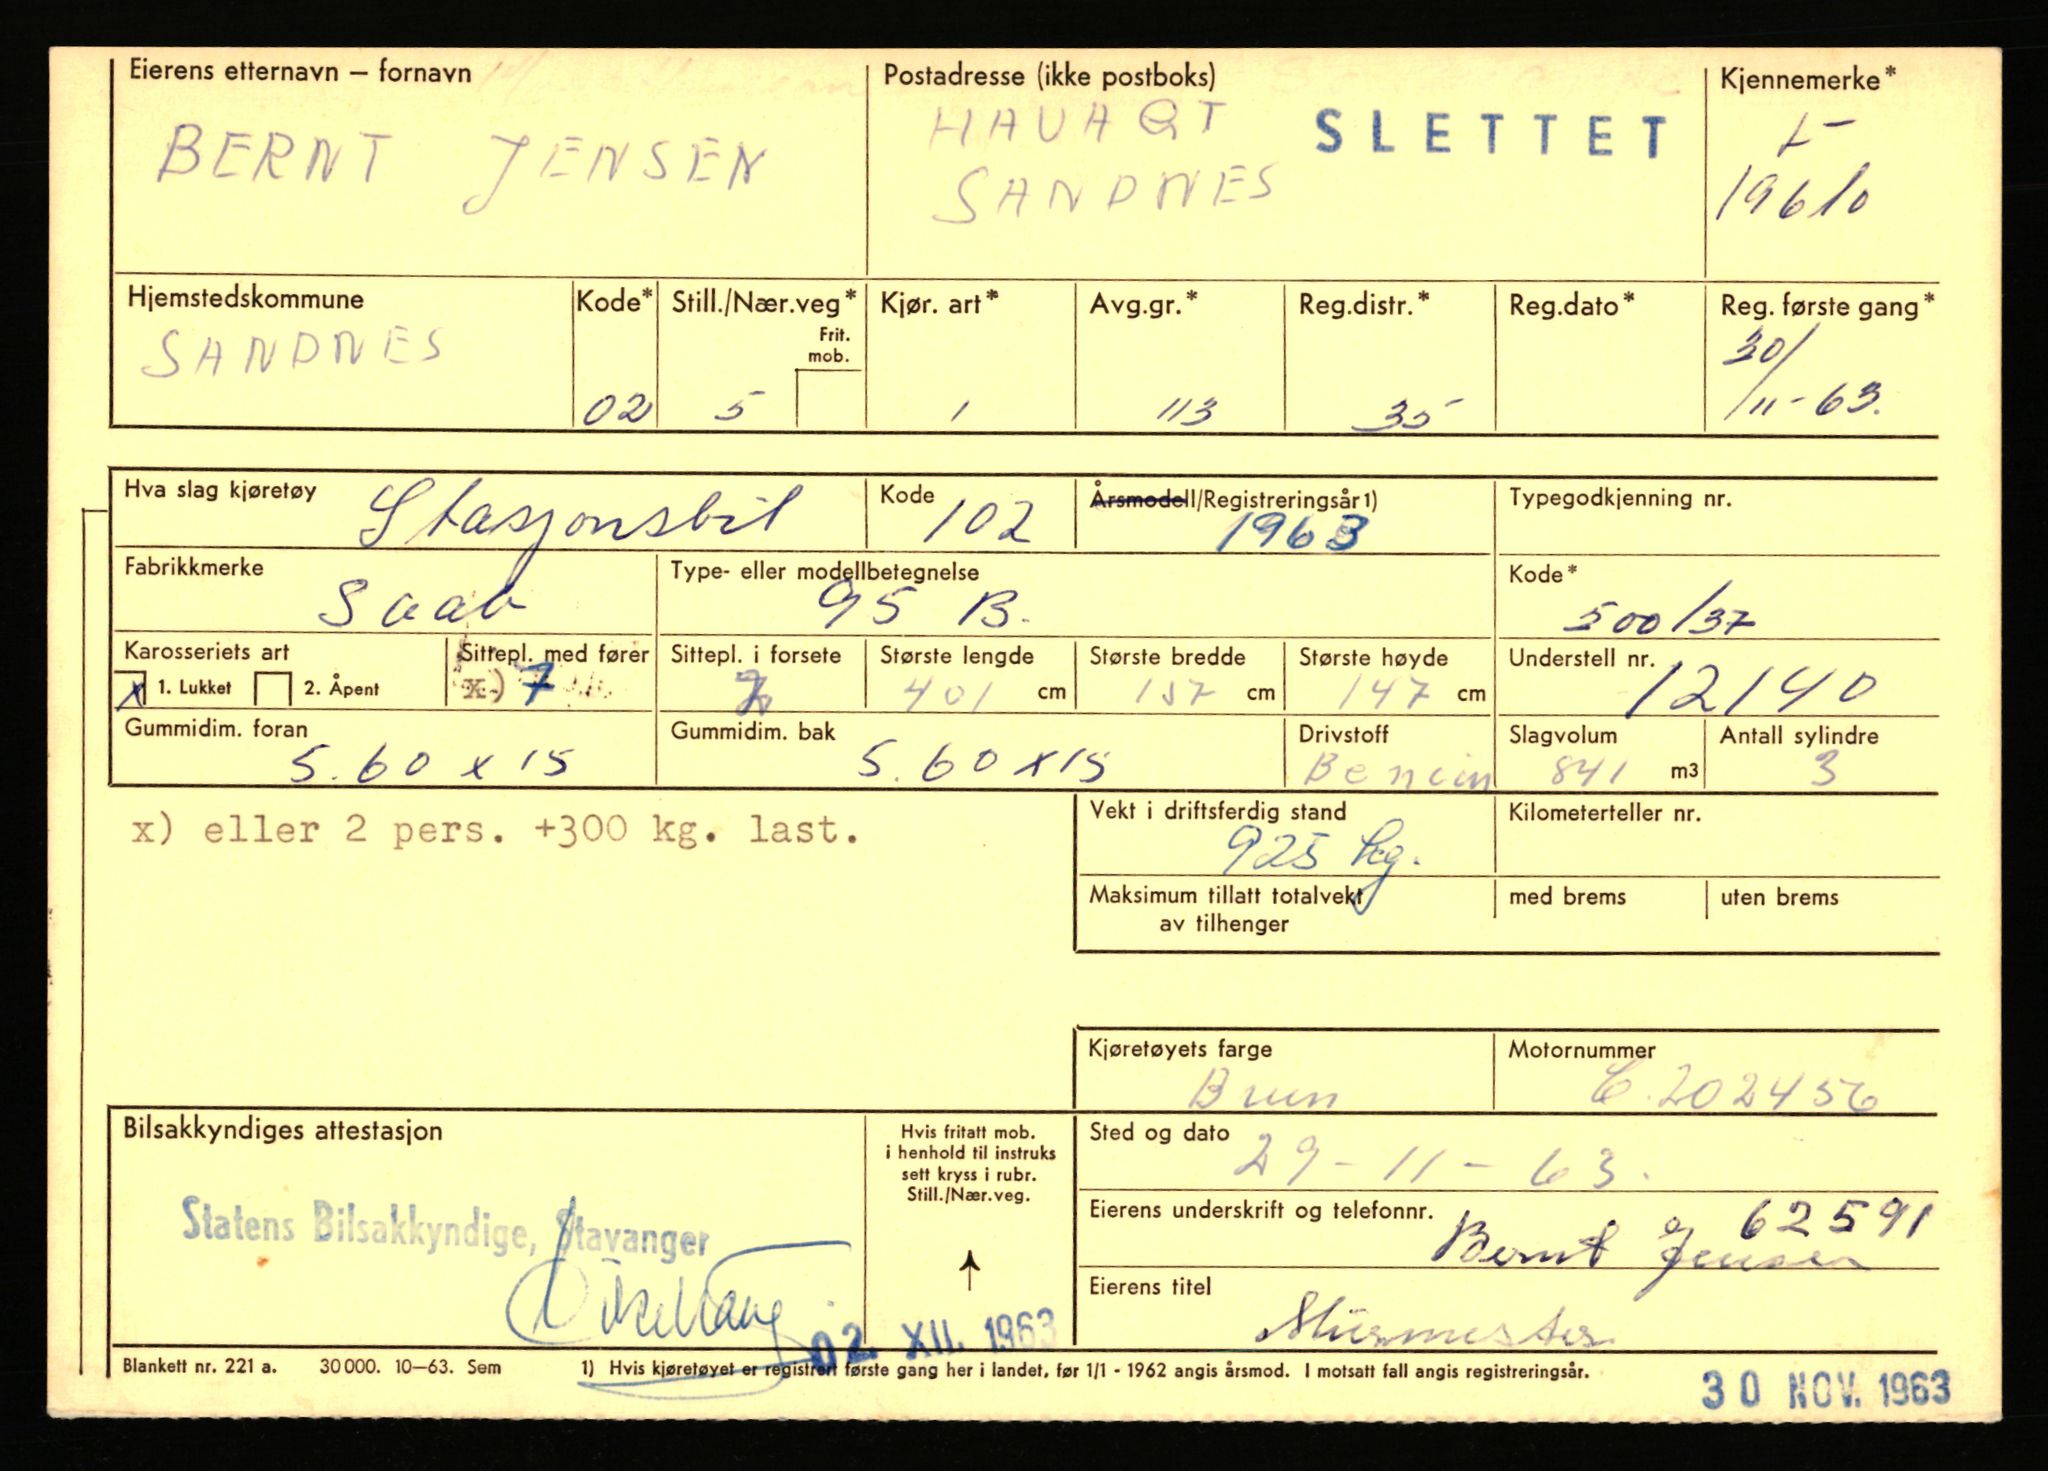 Eierens etternavn – fornavn
Postadresse (ikke postboks)
Kjennemerke*
BERNT JENSEN
HAVAGT
SANDNES
SLETTET
L-
19610
Hjemstedskommune
Kode*
Still./Nær.veg*
Frit.
mob.
Kjør. art*
Avg.gr.*
Reg.distr.*
Reg.dato*
Reg. første gang*
SANDNES
02
5
1
113
35
30/
/11-63.
Hva slag kjøretøy
Stasjonsbil
Kode
102
Årsmodell/Registreringsår 1)
1963
Typegodkjenning nr.
Fabrikkmerke
Saab
Type- eller modellbetegnelse
95 B.
Kode*
500/37
Karosseriets art
x 1. Lukket 2. Åpent
Sittepl. med fører
x) 7
Sittepl. i forsete
2
Største lengde
401 cm
Største bredde
157 cm
Største høyde
147 cm
Understell nr.
12140
Gummidim. foran
5.60 x 15
Gummidim. bak
5.60 x 15
Drivstoff
Bencin
Slagvolum
841 m3
Antall sylindre
3
x) eller 2 pers. +300 kg. last.
Vekt i driftsferdig stand
925 kg.
Kilometerteller nr.
Maksimum tillatt totalvekt
av tilhenger
med brems
uten brems
Kjøretøyets farge
Brun
Motornummer
C.202456
Bilsakkyndiges attestasjon
Statens Bilsakkyndige, Stavanger
Hvis fritatt mob.
i henhold til instruks
sett kryss i rubr.
Still./Nær.veg.
02. XII. 1963
Sted og dato
29-11-63.
Eierens underskrift og telefonnr.
62591
Bernt Jensen
Eierens titel
Murmester
Blankett nr. 221 a. 30 000. 10–63. Sem
1) Hvis kjøretøyet er registrert første gang her i landet, før 1/1 - 1962 angis årsmod. I motsatt fall angis registreringsår.
30 NOV. 1963